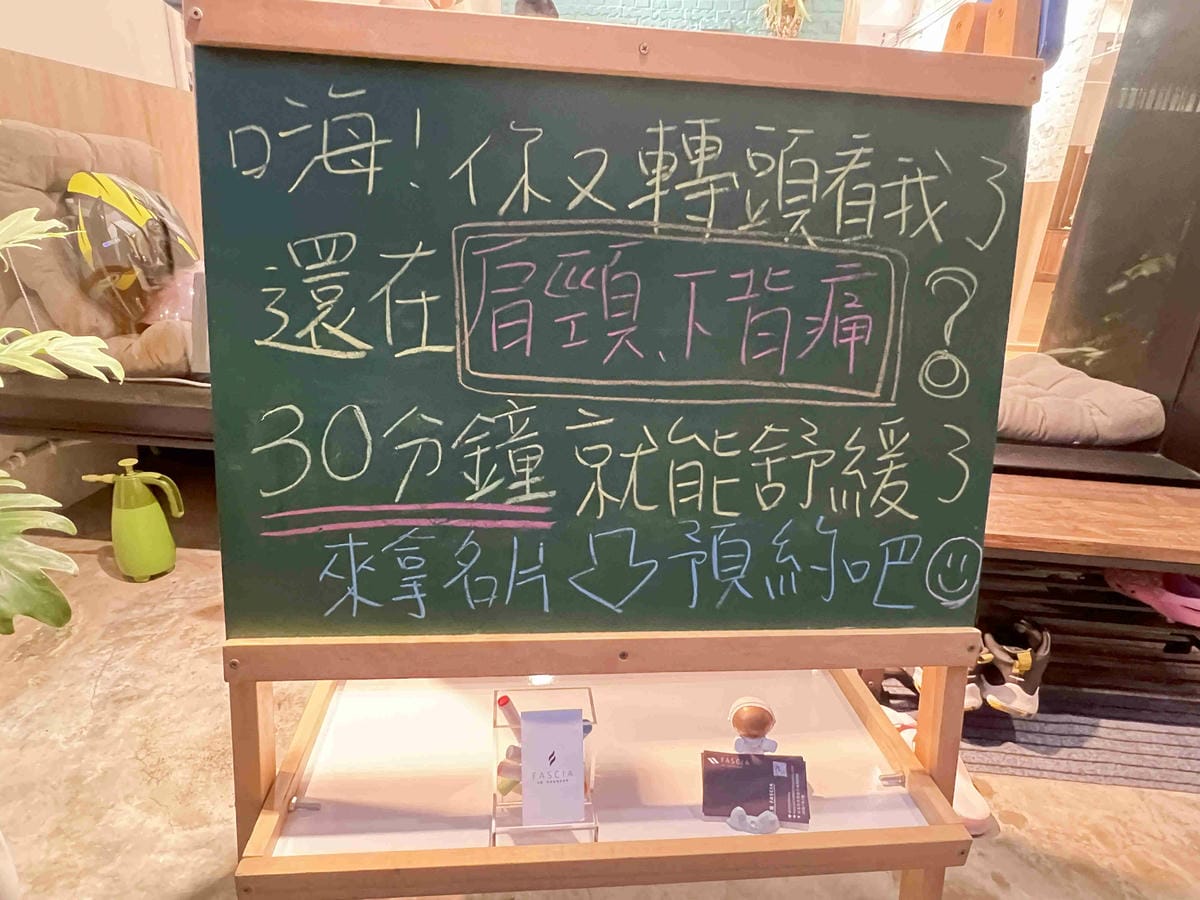 嗨!你又轉頭看我了
還在肩頸、下背痛?
30分鐘就能舒緩了
來拿名片預約吧
FASCIA
FASCIA
FASCIA